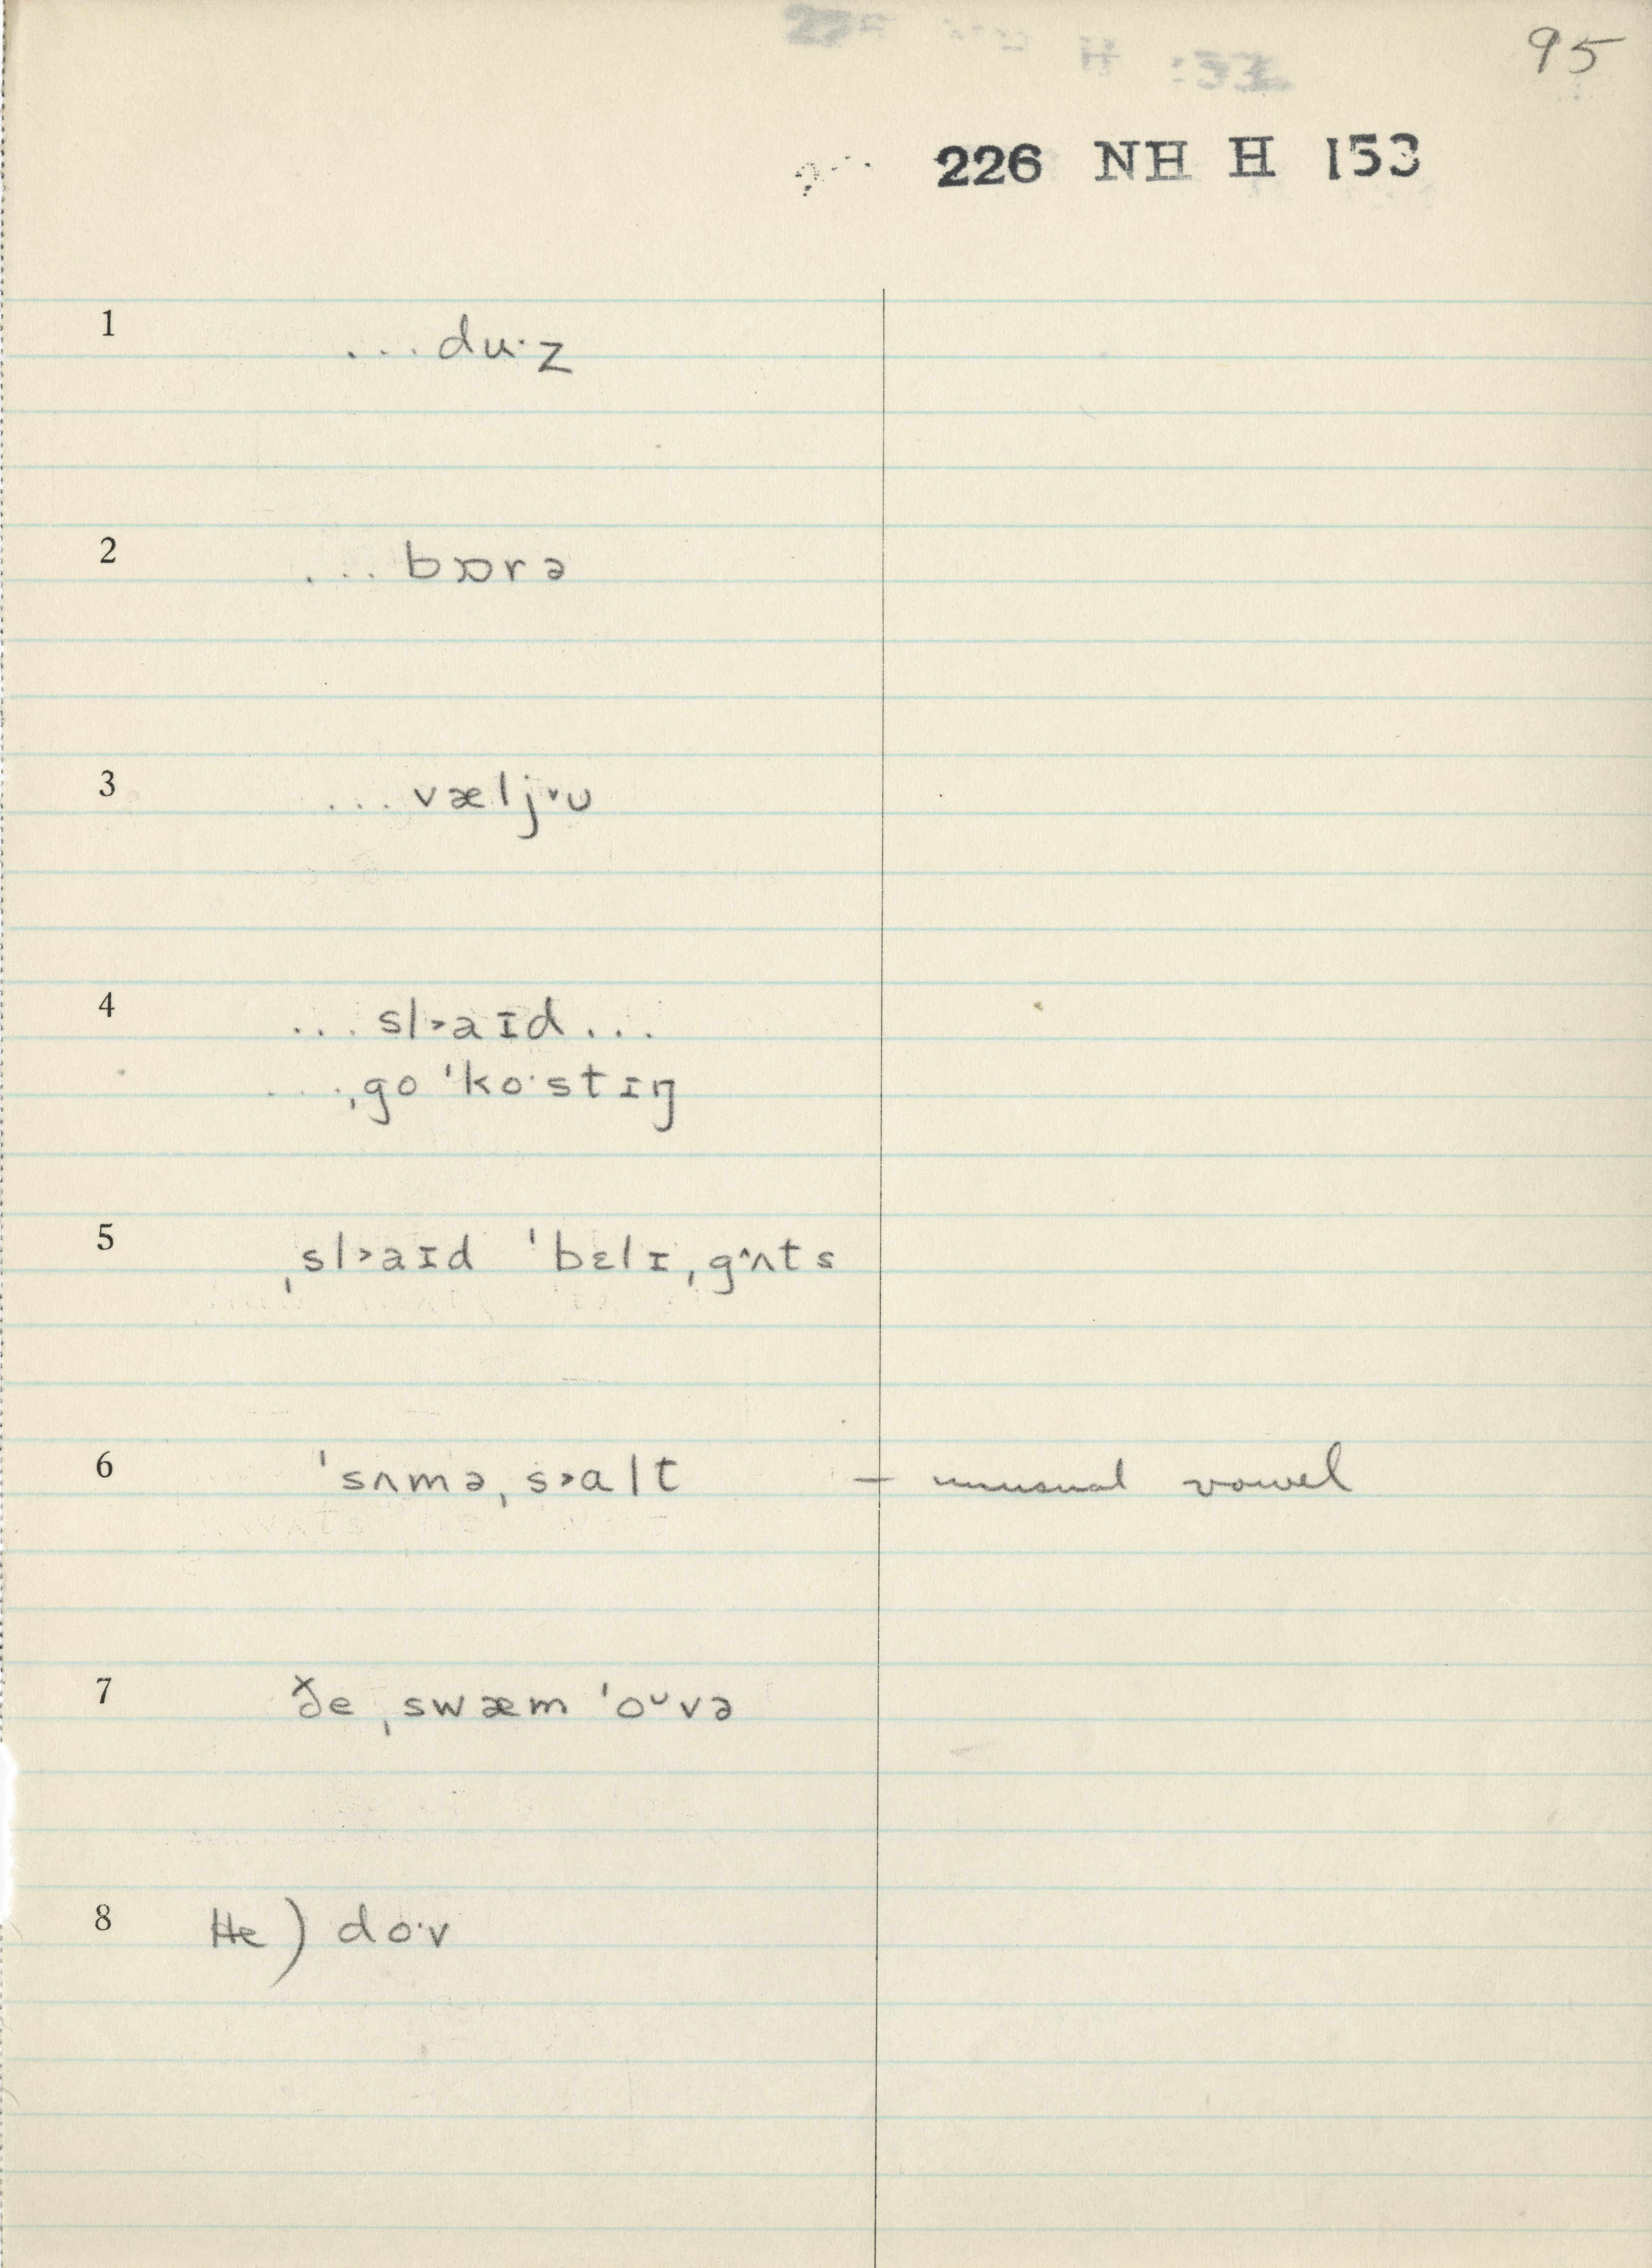 95
226 NH H 153
1 ...du·z
2 ...bɒrə
3 ...væljᵛu
4 ...sl˃aɪd...
...ˌgo ˈko·stɪŋ
5 ˌsl˃aɪd ˈbɛlɪˌg^ʌts
6 ˈsʌməˌs˃alt – unusual vowel
7 ðe ˌswæm ˈoᵘvə
8 He) do·v